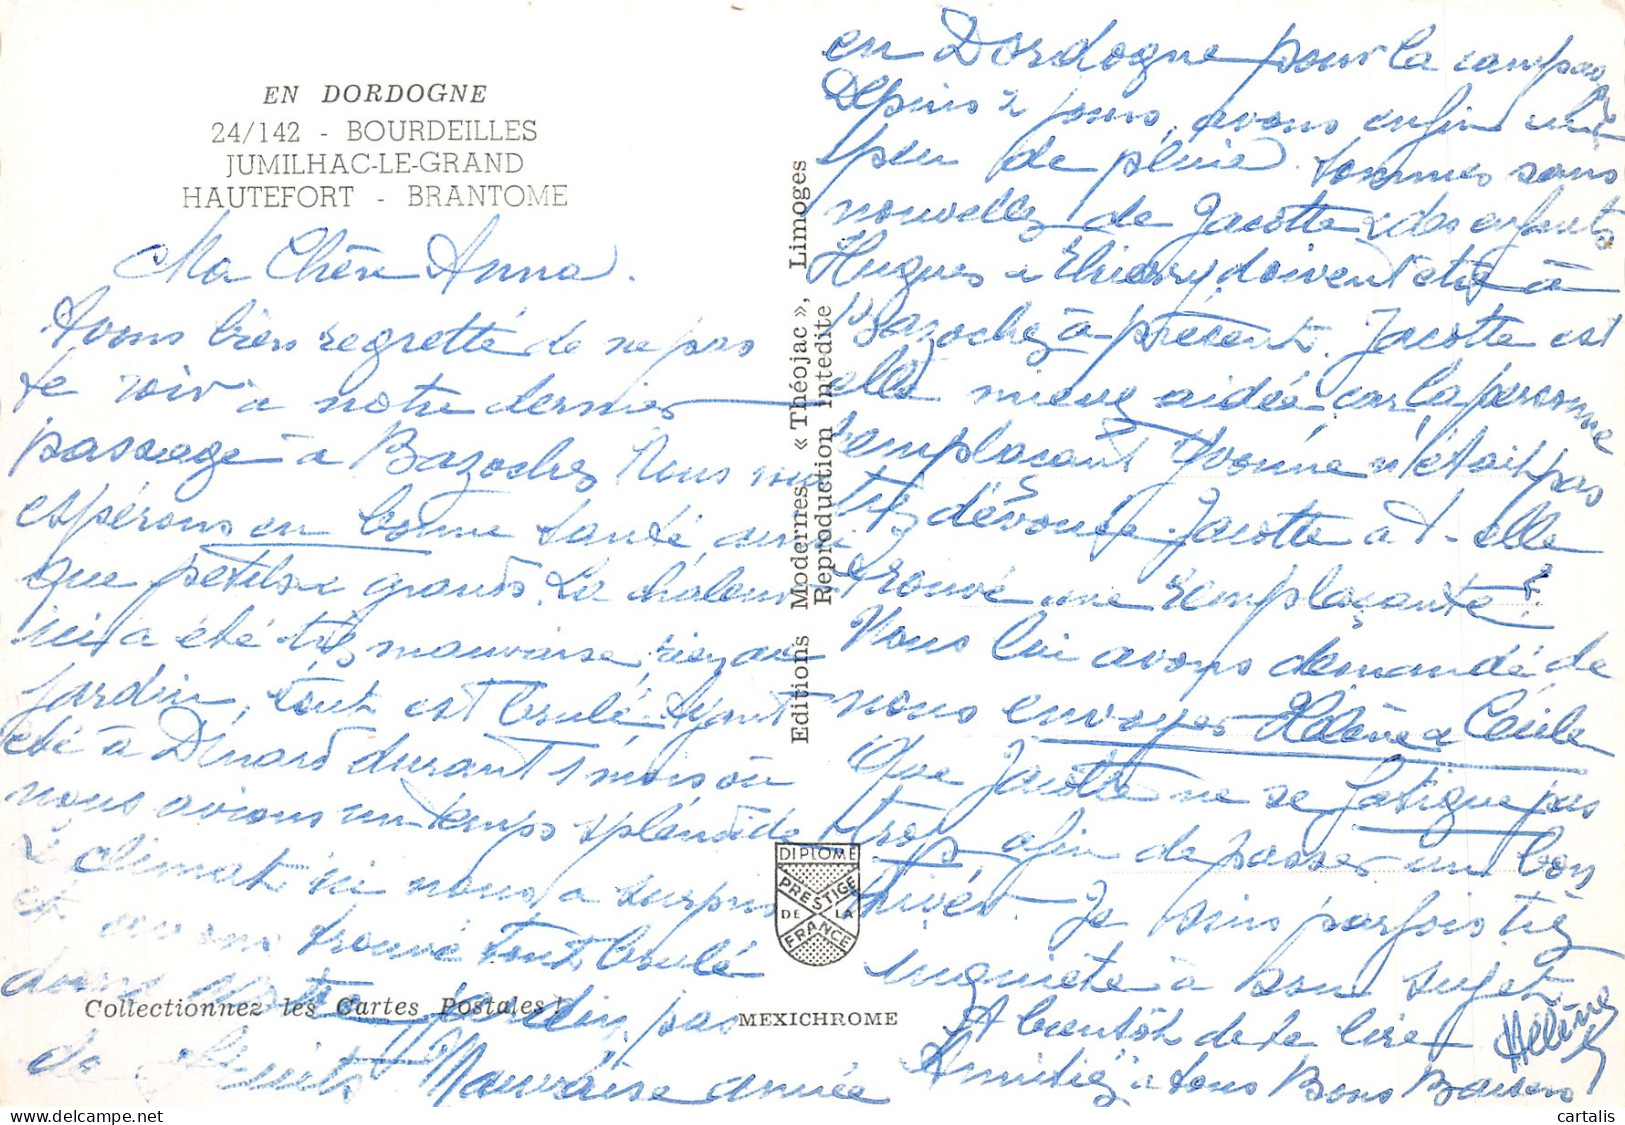 EN DORDOGNE
24/142 - BOURDEILLES
JUMILHAC-LE-GRAND
HAUTEFORT - BRANTOME
Ma Chère Anna.
Avons bien regretté de ne pas
te voir à notre dernier
passage à Bazoches Nous vous
espérons en bonne santé, ainsi
que petits & grands. La chaleur
ici a été très mauvaise, rien au
jardin, tout est brulé. Ayant
été à Dinard durant 1 mois où
nous avions un temps splendide
Le climat ici nous a surpris
et avons trouvé tout brulé
dans notre jardin, pas
de fruits Mauvaise année
en Dordogne pour la campagne
Depuis 2 jours, avons enfin un
peu de pluie. Sommes sans
nouvelles de Jacotte & des enfants
Hugues & Thierry doivent être à
Bazoches à présent. Jacotte est
elle mieux aidée car la personne
remplaçant Yvonne n'était pas
très dévouée. Jacotte a t-elle
trouvé une remplaçante ?
Nous lui avons demandé de
nous envoyer Hélène & Cécile
Que Jacotte ne se fatigue pas
trop afin de passer un bon
hiver. Je suis parfois très
inquiète à son sujet
A bientôt de te lire
Amitiés à tous Bons Baisers
Hélène
Editions Modernes « Théojac », Limoges
Reproduction Intedite
DIPLOME
PRESTIGE
DE LA
FRANCE
Collectionnez les Cartes Postales !
MEXICHROME
cartalis